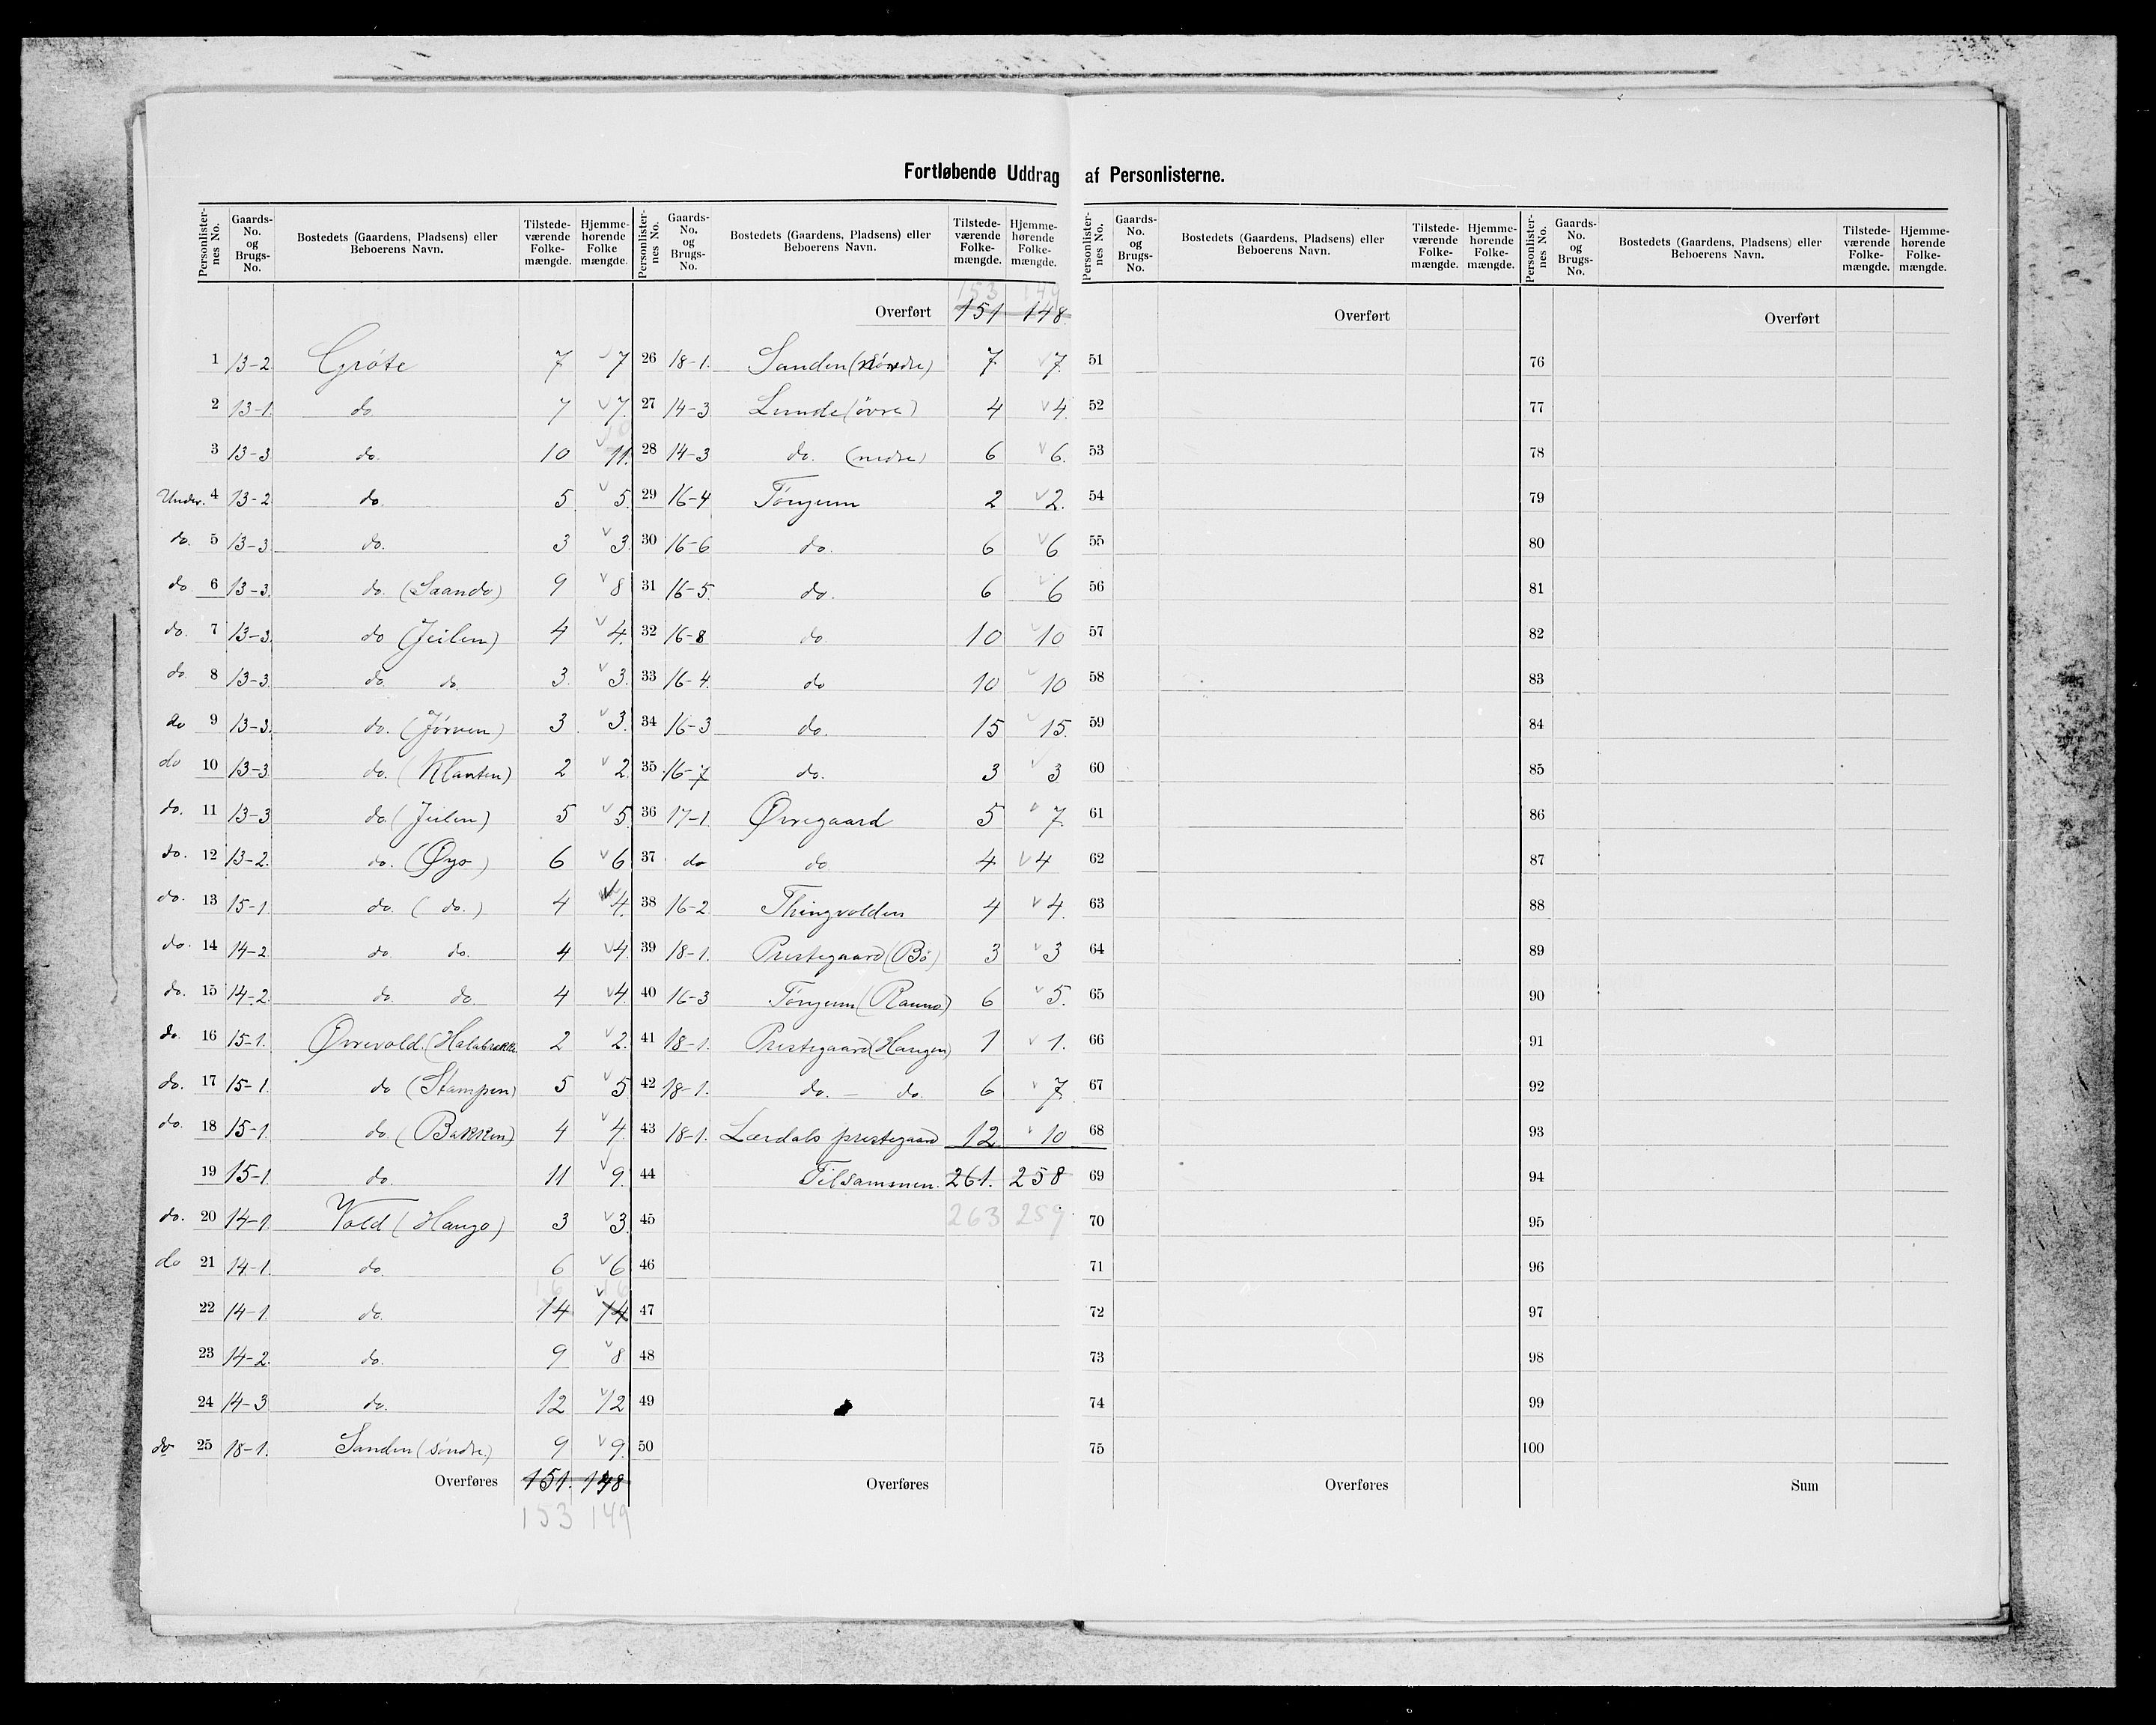 Fortløbende Uddrag af Personlisterne.
Personlister-nes No. Gaards-No. og Brugs-No. Bostedets (Gaardens, Pladsens) eller Beboerens Navn. Tilstede-værende Folke-mængde. Hjemme-hørende Folke mængde.
1 13-2. Grøte 7 7
2 13-1. do 7 7.
3 13-3 do. 10 11.
Under. 4 13-2 do. 5 5.
do. 5 13-3. do. 3 3.
do 6 13-3. do. (Saando) 9 8
do. 7 13-3. do (Jeilen) 4 4.
do. 8 13-3. do. do. 3. 3.
do 9 13-3. do. (Jørven) 3 3.
do 10 13-3 do. (Klanten) 2 2.
do. 11 13-3 do. (Jeilen) 5 5.
do. 12 13-2. do. (Øyo) 6 6
do. 13 15-1. do. (do.) 4 4.
do. 14 14-2. do. do. 4 4.
do. 15 14-2. do. do 4 4.
do. 16 15-1. Øvrevold. 2 2.
do. 17 15-1. do (Stampen) 5 5
do. 18 15-1. do. (Bakken) 4 4.
19 15-1 do. 11 9.
do. 20 14-1. Vold (Haugo) 3 3.
do 21 14-1. do. 6 6
16 16
22 14-1. do. 14 14
23 14-2. do. 9 8
24 14-3 do. 12 12
do 25 18-1. Sanden (søndre) 9 9.
Overføres 151. 148
153 149
Personlister-nes No. Gaards-No. og Brugs-No. Bostedets (Gaardens, Pladsens) eller Beboerens Navn. Tilstede-værende Folke-mængde. Hjemme-hørende Folke-mængde.
153 149
Overført 151 148.
26 18-1. Sanden 7. 7.
27 14-3 Lunde (øvre) 4 4.
28 14-3 do. (nedre) 6 6.
29 16-4 Tønjum 2 2.
30 16-6 do. 6 6
31 16-5 do. 6 6
32 16-8 do. 10 10
33 16-4. do 10 10
34 16-3 do. 15 15.
35 16-7 do. 3 3
36 17-1. Øvregaard 5 7.
37 do do 4 4
38 16-2 Thingvolden 4 4.
39 18-1. Prestegaard (Bø) 3 3
40 16-3 Tønjum 6 5.
41 18-1. Prestegaard (Haugen) 1 1.
42 18-1. do. - do. 6 7.
43 18-1. Lærdals prestegaard 12 10
44 Tilsammen. 261. 258
45 263 259
46
47
48
49
50
Overføres
Personlister-nes No. Gaards-No. og Brugs-No. Bostedets (Gaardens, Pladsens) eller Beboerens Navn. Tilstede-værende Folke-mængde. Hjemme-hørende Folke-mængde.
Overført
51
52
53
54
55
56
57
58
59
60
61
62
63
64
65
66
67
68
69
70
71
72
73
74
75
Overføres
Personlister-nes No. Gaards-No. og Brugs-No. Bostedets (Gaardens, Pladsens) eller Beboerens Navn. Tilstede-værende Folke-mængde. Hjemme-hørende Folke-mængde.
Overført
76
77
78
79
80
81
82
83
84
85
86
87
88
89
90
91
92
93
94
95
96
97
98
99
100
Sum